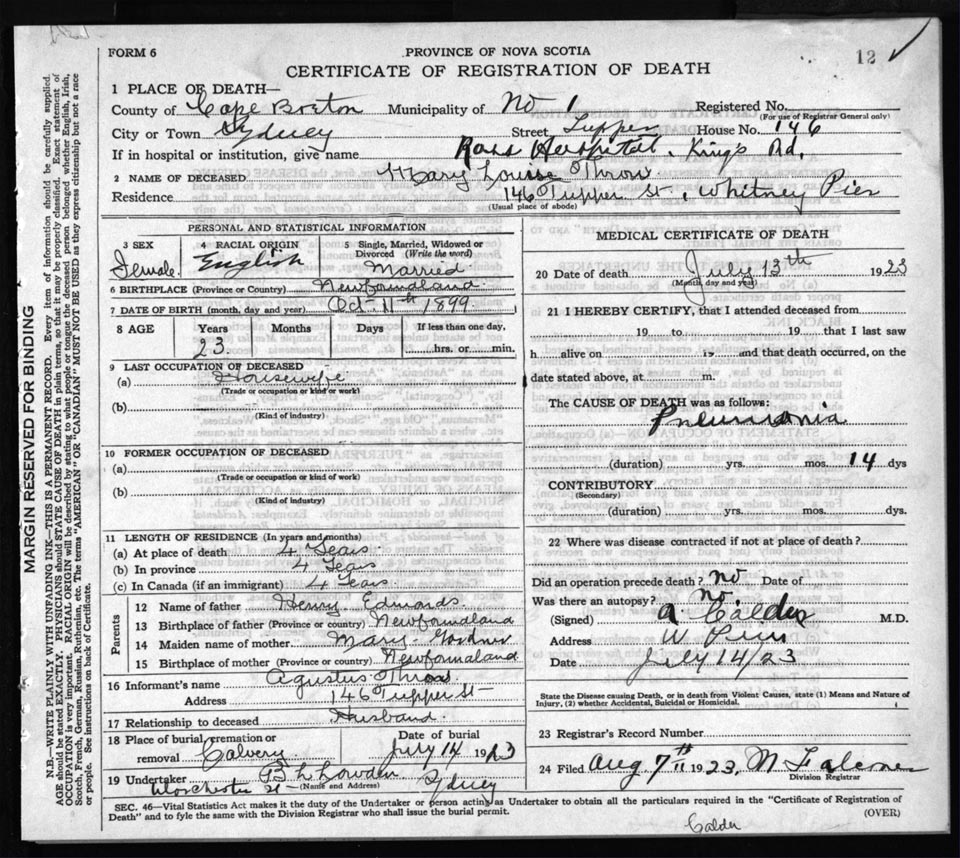 FORM 6
PROVINCE OF NOVA SCOTIA
12
CERTIFICATE OF REGISTRATION OF DEATH
1 PLACE OF DEATH—
County of Cape Breton Municipality of No 1 Registered No.
(For use of Registrar General only)
City or Town Sydney Street Tupper House No. 146
If in hospital or institution, give name Ross Hospital, King's Rd.
2 NAME OF DECEASED Mary Louise Throw
Residence 146 Tupper St, Whitney Pier
(Usual place of abode)
PERSONAL AND STATISTICAL INFORMATION
3 SEX
Female
4 RACIAL ORIGIN
English
5 Single, Married, Widowed or Divorced (Write the word)
Married
6 BIRTHPLACE (Province or Country) Newfoundland
7 DATE OF BIRTH (month, day and year) Oct 11th 1899
8 AGE Years Months Days If less than one day,
23 hrs. or min.
9 LAST OCCUPATION OF DECEASED
(a) Housewife
(Trade or occupation or kind or work)
(b)
(Kind of industry)
10 FORMER OCCUPATION OF DECEASED
(a)
(Trade or occupation or kind of work)
(b)
(Kind of industry)
11 LENGTH OF RESIDENCE (In years and months)
(a) At place of death 4 Years
(b) In province 4 Years
(c) In Canada (if an immigrant) 4 Years
Parents
12 Name of father Henry Edmonds
13 Birthplace of father (Province or country) Newfoundland
14 Maiden name of mother Mary
15 Birthplace of mother (Province or country) Newfoundland
16 Informant's name Agustus Throw
Address 146 Tupper St
17 Relationship to deceased Husband
18 Place of burial, cremation or removal Calvery
Date of burial July 14 1923
19 Undertaker Lowden
(Name and Address) Dorchester St Sydney
MEDICAL CERTIFICATE OF DEATH
20 Date of death July 13th 1923
(Month, day and year)
21 I HEREBY CERTIFY, that I attended deceased from
19 to 19 that I last saw
h alive on 19 and that death occurred, on the
date stated above, at m.
The CAUSE OF DEATH was as follows:
Pneumonia
(duration) yrs. mos. 14 dys
CONTRIBUTORY
(Secondary)
(duration) yrs. mos. dys.
22 Where was disease contracted if not at place of death?
Did an operation precede death? no Date of
Was there an autopsy? no
(Signed) A Calder M.D.
Address W Pier
Date July 14/23
State the Disease causing Death, or in death from Violent Causes, state (1) Means and Nature of
Injury, (2) whether Accidental, Suicidal or Homicidal.
23 Registrar's Record Number
24 Filed Aug 7th 1923, M Falconer
Division Registrar
SEC. 46—Vital Statistics Act makes it the duty of the Undertaker or person acting as Undertaker to obtain all the particulars required in the "Certificate of Registration of
Death" and to fyle the same with the Division Registrar who shall issue the burial permit.
(OVER)
Calder
MARGIN RESERVED FOR BINDING
N.B.—WRITE PLAINLY WITH UNFADING INK—THIS IS A PERMANENT RECORD. Every item of information should be carefully supplied.
AGE should be stated EXACTLY. PHYSICIANS should STATE CAUSE OF DEATH in plain terms, so that it may be properly classified. Exact statement of
OCCUPATION is very important. RACIAL ORIGIN will be described by stating to what people or tongue the deceased person belonged whether English, Irish,
Scotch, French, German, Russian, Ruthenian, etc. The terms "AMERICAN" OR "CANADIAN" MUST NOT BE USED as they express citizenship but not a race
or people. See instructions on back of Certificate.